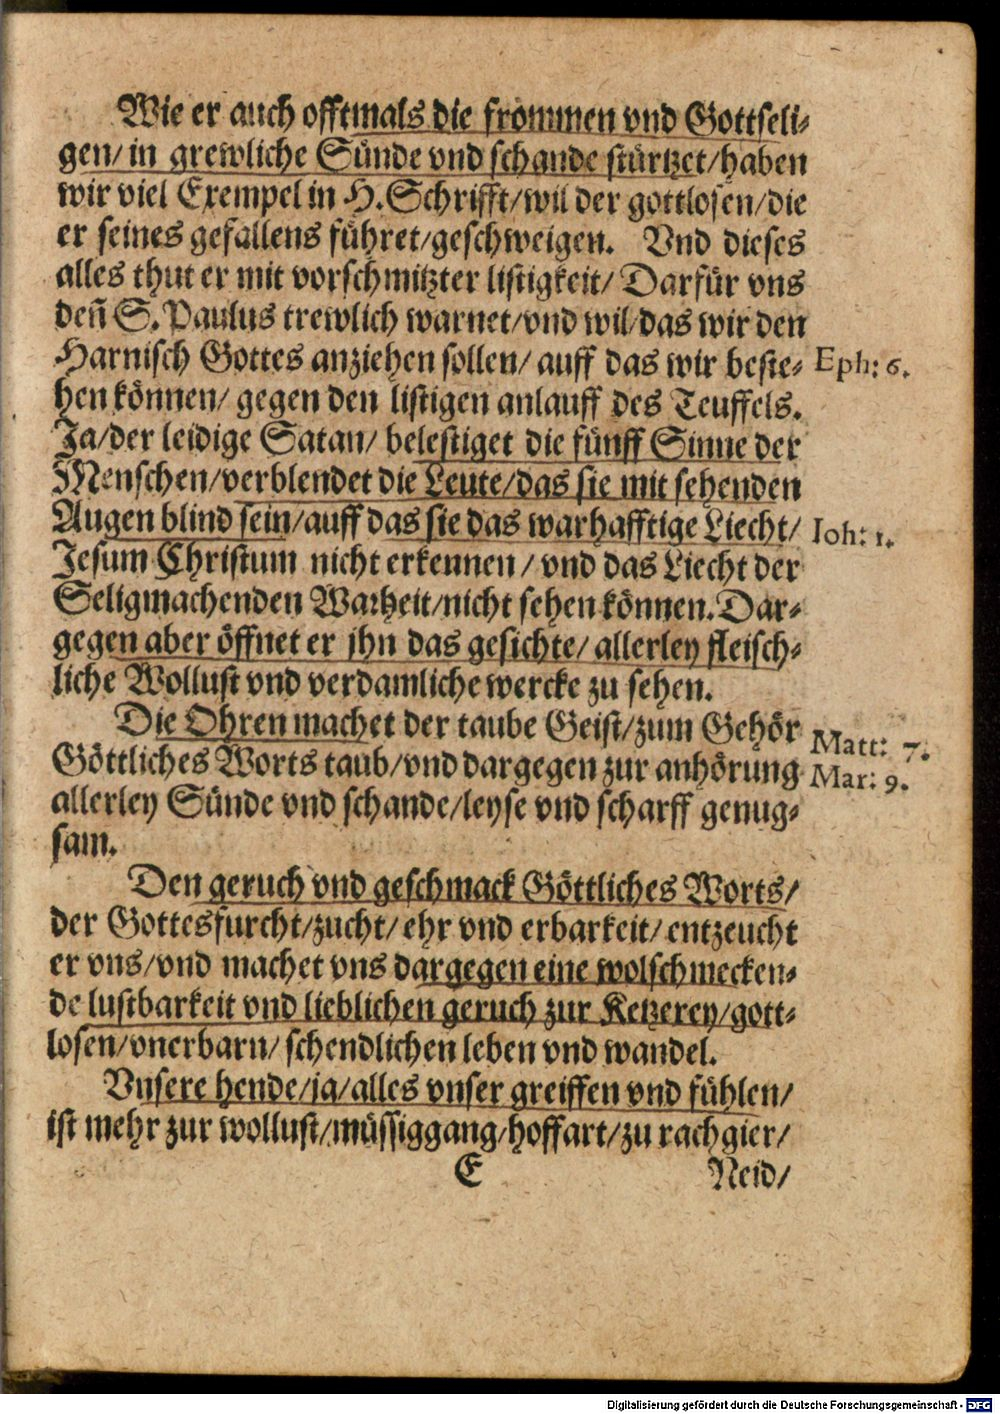 Wie er auch offtmals die frommen vnd Gottseli-
gen/ in grewliche Sünde vnd schande stürtzet/ haben
wir viel Exempel in H. Schrifft/ wil der gottlosen/ die
er seines gefallens führet/ geschweigen. Vnd dieses
alles thut er mit vorschmitzter listigkeit/ Darfür vns
deñ S. Paulus trewlich warnet/ vnd wil/ das wir den
Harnisch Gottes anziehen sollen/ auff das wir beste- Eph: 6.
hen können/ gegen den listigen anlauff des Teuffels.
Ja/ der leidige Satan/ belestiget die fünff Sinne der
Menschen/ verblendet die Leute/ das sie mit sehenden
Augen blind sein/ auff das sie das warhafftige Liecht/ Ioh: 1.
Jesum Christum nicht erkennen/ vnd das Liecht der
Seligmachenden Warheit/ nicht sehen können. Dar-
gegen aber öffnet er jhn das gesichte/ allerley fleisch-
liche Wollust vnd verdamliche wercke zu sehen.
Die Ohren machet der taube Geist/ zum Gehör Matt: 7.
Göttliches Worts taub/ vnd dargegen zur anhörung Mar: 9.
allerley Sünde vnd schande/ leyse vnd scharff genug-
sam.
Den geruch vnd geschmack Göttliches Worts/
der Gottesfurcht/ zucht/ ehr vnd erbarkeit/ entzeucht
er vns/ vnd machet vns dargegen eine wolschmecken-
de lustbarkeit vnd lieblichen geruch zur Ketzerey/ gott-
losen/ vnerbarn/ schendlichen leben vnd wandel.
Vnsere hende/ ja/ alles vnser greiffen vnd fühlen/
ist mehr zur wollust/ müssiggang/ hoffart/ zu rachgier/
E Neid/
Digitalisierung gefördert durch die Deutsche Forschungsgemeinschaft - DFG